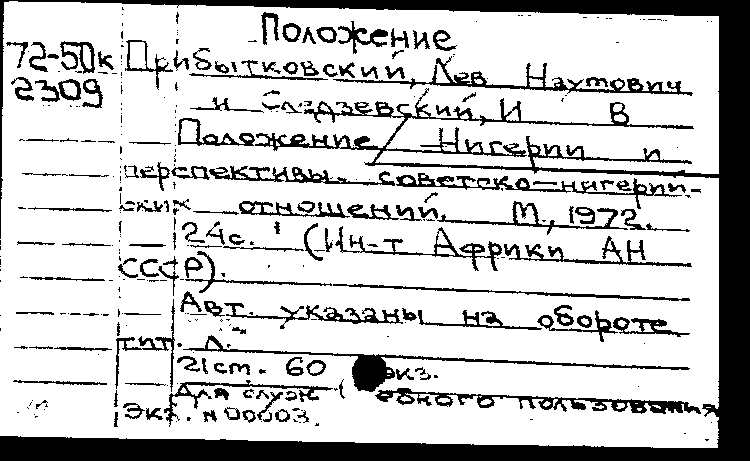 Положение
72-50к Прибытковский, Лев Наумович
2309 и Следзевский, И В
Положение Нигерии и
перспективы советско-нигерий-
ских отношений. М., 1972.
24с. (Ин-т Африки АН
СССР).
Авт. указаны на обороте
тит. л.
21 ст. 60 экз.
Для служебного пользования
Экз. N 00003.